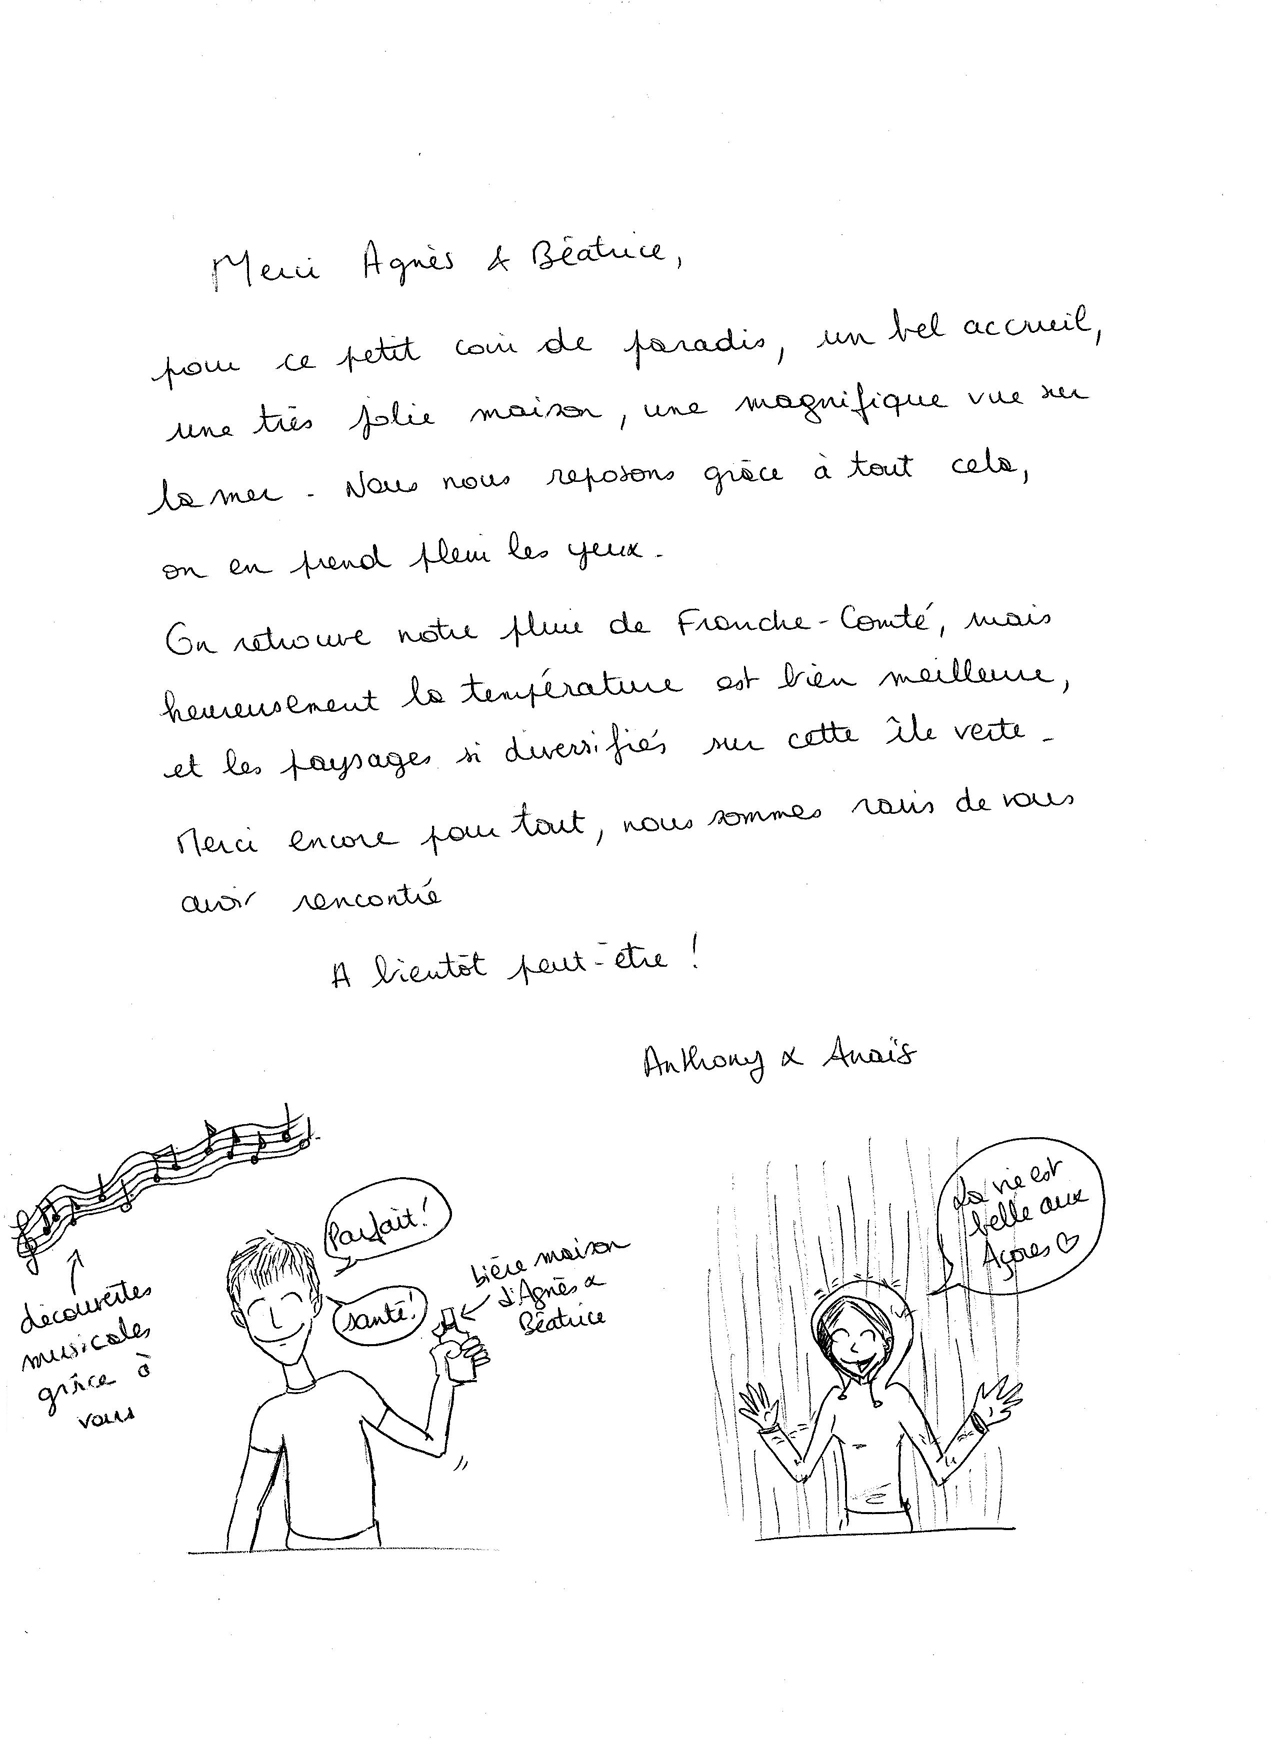 Merci Agnès & Béatrice,
pour ce petit coin de paradis, un bel accueil,
une très jolie maison, une magnifique vue sur
la mer. Nous nous reposons grâce à tout cela,
on en prend plein les yeux.
On retrouve notre pluie de Franche-Comté, mais
heureusement la température est bien meilleure,
et les paysages si diversifiés sur cette île verte.
Merci encore pour tout, nous sommes ravis de vous
avoir rencontré
A bientôt peut-être !
Anthony & Anaïs
découvertes
musicales
grâce à
vous
Parfait !
santé !
bière maison
d'Agnès &
Béatrice
La vie est
belle aux
Açores ♡